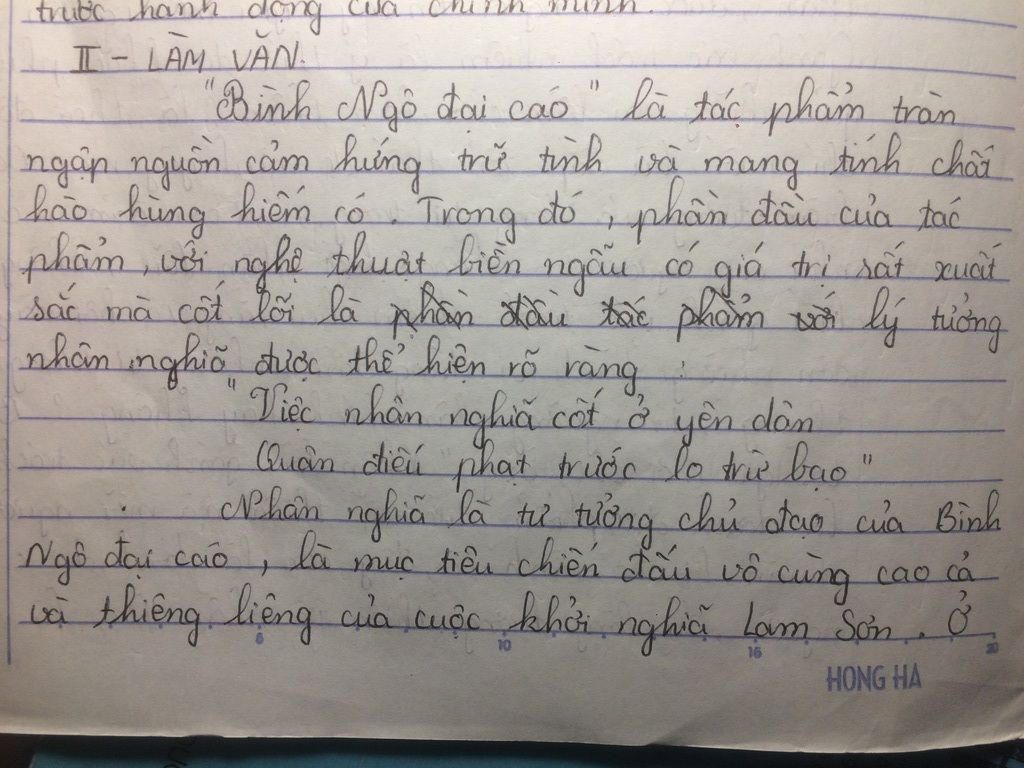 trước hành động của chính mình.
II - LÀM VĂN.
"Bình Ngô đại cáo" là tác phẩm tràn
ngập nguồn cảm hứng trữ tình và mang tính chất
hào hùng hiếm có. Trong đó, phần đầu của tác
phẩm, với nghệ thuật biền ngẫu có giá trị rất xuất
sắc mà cốt lõi là phần đầu tác phẩm với lý tưởng
nhân nghĩa được thể hiện rõ ràng :
"Việc nhân nghĩa cốt ở yên dân
Quân điếu phạt trước lo trừ bạo"
Nhân nghĩa là tư tưởng chủ đạo của Bình
Ngô đại cáo, là mục tiêu chiến đấu vô cùng cao cả
và thiêng liêng của cuộc khởi nghĩa Lam Sơn. Ở
6 10 16 20
HONG HA